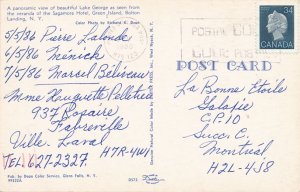 A panoramic view of beautiful Lake George as seen from
the veranda of the Sagamore Hotel, Green Island, Bolton
Landing, N. Y.
Color Photo by Richard K. Dean
5/5/86 Pierre Lalonde
6/5/86 Meinick
7/5/86 Marcel Béliveau
Mme Huguette Pelletier
937 Rosaire
Fabreville
Ville Laval
H7R-4W1
TEL: 627-2327.
Pub. by Dean Color Service, Glens Falls, N. Y.
D575
34
CANADA
POST CARD
La Bonne Etoile
Galaxie
C.P. 10
Succ. C.
Montréal
H2L-4J8